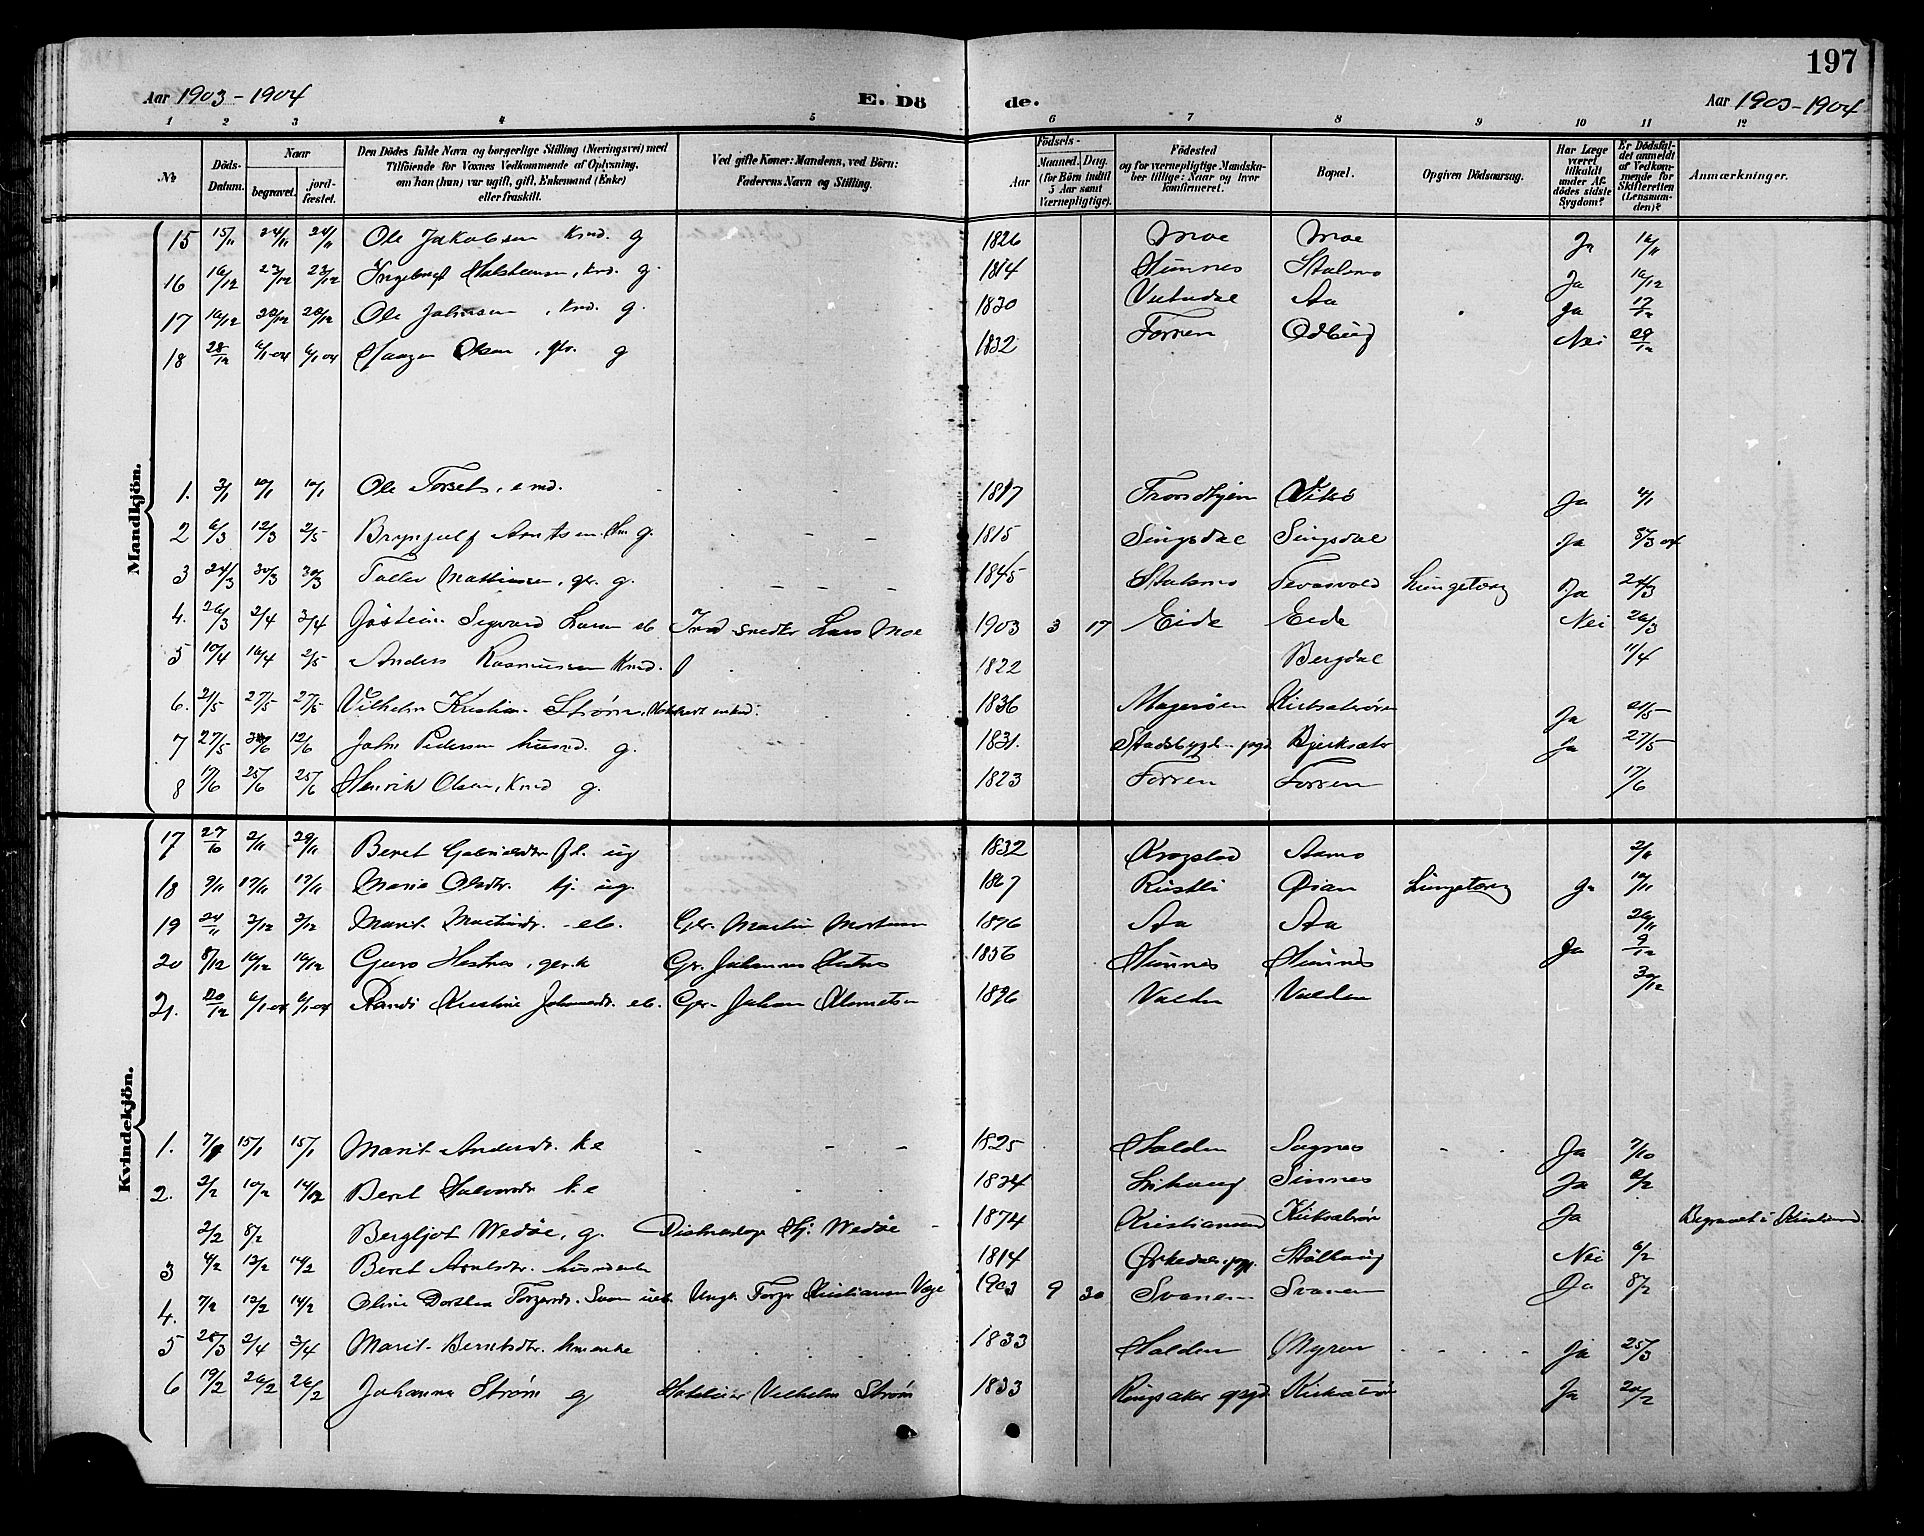 197
Aar 1903-1904 E. Dö de. Aar 1903-1904
1 2 3 4 5 6 7 8 9 10 11 12
№ Döds-Datum. Naar begravet. jord-fæstet. Den Dödes fulde Navn og borgerlige Stilling (Næringsvei) med Tilföiende for Voxnes Vedkommende af Oplysning, om han (hun) var ugift, gift, Enkemand (Enke) eller fraskilt. Ved gifte Koner: Mandens, ved Börn: Faderens Navn og Stilling. Födsels- Aar Maaned. Dag. (for Börn indtil 5 Aar samt Værnepligtige). Födested og for værnepligtige Mandskaber tillige: Naar og hvor konfirmeret. Bopæl. Opgiven Dödsaarsag. Har Læge været tilkaldt under Afdödes sidste Sygdom? Er Dödsfaldet anmeldt af Vedkommende for Skifteretten (Lensmanden)? Anmærkninger.
Mandkjön.
15 15/11 24/11 24/11 Ole Jakobsen knd. g 1826 Moe Moe Ja 16/11
16 16/12 23/12 23/12 Ingebrigt Halstensen, knd. g. 1814 Stalsmo Ja 16/12
17 16/12 20/12 20/12 Ole Johnsen, knd. g. 1830 Aa Ja 17/12
18 28/12 6/1-04 6/1-04 Haagen Olsen, gbr. g 1832 Forren Nei 29/12
1. 3/1 10/1 10/1 Ole Forseth, emd. 1817 Trondhjem Ja 4/1
2 6/3 12/3 2/5 Brynjulf Arntsen g. 1815 Singsdal Singsdal Ja 8/3 04
3 24/3 30/3 30/3 Toller Mathisen, gbr. g. 1845 Stalsmo Tevasvold Lungetæring Ja 24/3
4. 26/3 2/4 3/4 Jøstein Sigvard Larsen eb Ind. snedker Lars Moe 1903 3 17 Eide Eide Nei 26/3
5 10/4 16/4 2/5 Anders Rasmussen knd. 1822 Bergdal 11/4
6. 21/5 27/5 27/5 Vilhelm Kristian Strøm, enkd. 1836 Magerøen Kirksæterøren Ja 21/5
7 27/5 12/6 John Pedersen husmd. g. 1831. Stadsbygd pgd Bjerksæter Ja 27/5
8 17/6 25/6 25/6 Henrik Olsen, knd g. 1823 Forren Forren 17/6
Kvindekjön.
17 27/10 2/11 29/11 Beret Gabrielsdtr. ug 1832 Krogstad Aamo 2/11
18 9/11 17/11 17/11 Marie Olsdtr. tj. ug. 1867 Rustli Øian Lungetæring Ja 10/11
19 24/11 3/12 3/12 Marit Martinsdtr. eb. Gbr. Martin Mortensen 1896 Aa Aa 26/11
20 8/12 16/12 16/12 Guro Hestnes, gbr.k Gbr. Johannes Hestnes 1856 Hunnes Hunnes Ja 9/12
21. 20/12 6/1-04 6/1-04 Randi Kristine Johansdtr. eb. Gbr. Johan Klemetsen 1896 Valden Valden 30/12
1. 7/1 15/1 15/1 Marit Andersdtr. k.e 1825 Halden Sagnes Ja 7/10
2. 2/2 10/2 14/2 Beret Halvorsdtr k.e 1834 Sinnes Ja 2/2
2/2 8/2 Bergljot Wedøe, g. Distriktslæge Hj. Wedøe 1874 Kristiansund Kirksæterøren Ja Begravet i Kristiansund
3 4/2 13/2 14/2 Beret Arntsdtr. husmdenke 1814 Ørkedal pgd. Nei 6/2
4. 7/2 12/2 14/2 Oline Dorthea Torgersdtr. Svan ueb. Ungk. Torger Kristiansen 1903 9 30 Svanem Svanem Ja 8/2
5 25/3 2/4 3/4 Marit Berntsdtr. hmenke 1833 Halden Myren Ja 25/3
6 19/2 26/2 26/2 Johanna Strøm g Hoteleier Vilhelm Strøm 1833 Ringsaker pgd Kirksæterøren Ja 20/2